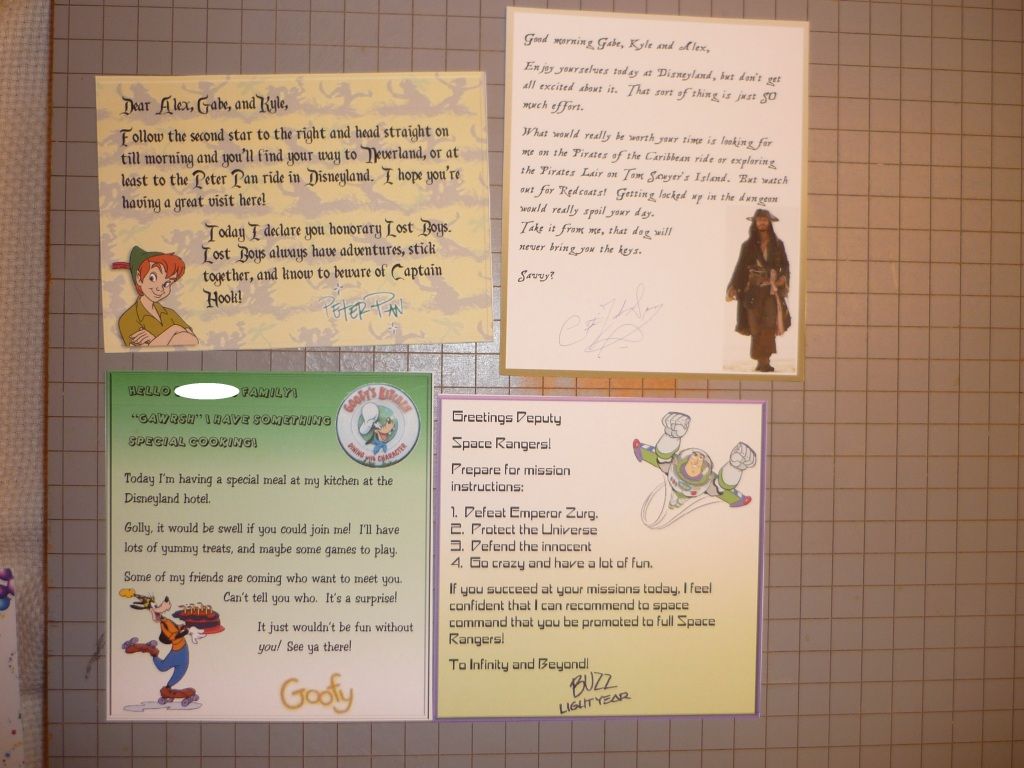 Dear Alex, Gabe, and Kyle,
Follow the second star to the right and head straight on
till morning and you'll find your way to Neverland, or at
least to the Peter Pan ride in Disneyland. I hope you're
having a great visit here!
Today I declare you honorary Lost Boys.
Lost Boys always have adventures, stick
together, and know to beware of Captain
Hook!
PETER PAN
Good morning Gabe, Kyle and Alex,
Enjoy yourselves today at Disneyland, but don't get
all excited about it. That sort of thing is just SO
much effort.
What would really be worth your time is looking for
me on the Pirates of the Caribbean ride or exploring
the Pirates Lair on Tom Sawyer's Island. But watch
out for Redcoats! Getting locked up in the dungeon
would really spoil your day.
Take it from me, that dog will
never bring you the keys.
Savvy?
HELLO FAMILY!
"GAWRSH" I HAVE SOMETHING
SPECIAL COOKING!
GOOFY'S KITCHEN
DINING with CHARACTER
Today I'm having a special meal at my kitchen at the
Disneyland hotel.
Golly, it would be swell if you could join me! I'll have
lots of yummy treats, and maybe some games to play.
Some of my friends are coming who want to meet you.
Can't tell you who. It's a surprise!
It just wouldn't be fun without
you! See ya there!
Goofy
Greetings Deputy
Space Rangers!
Prepare for mission
instructions:
1. Defeat Emperor Zurg.
2. Protect the Universe
3. Defend the innocent
4. Go crazy and have a lot of fun.
If you succeed at your missions today, I feel
confident that I can recommend to space
command that you be promoted to full Space
Rangers!
To Infinity and Beyond!
BUZZ
LIGHTYEAR